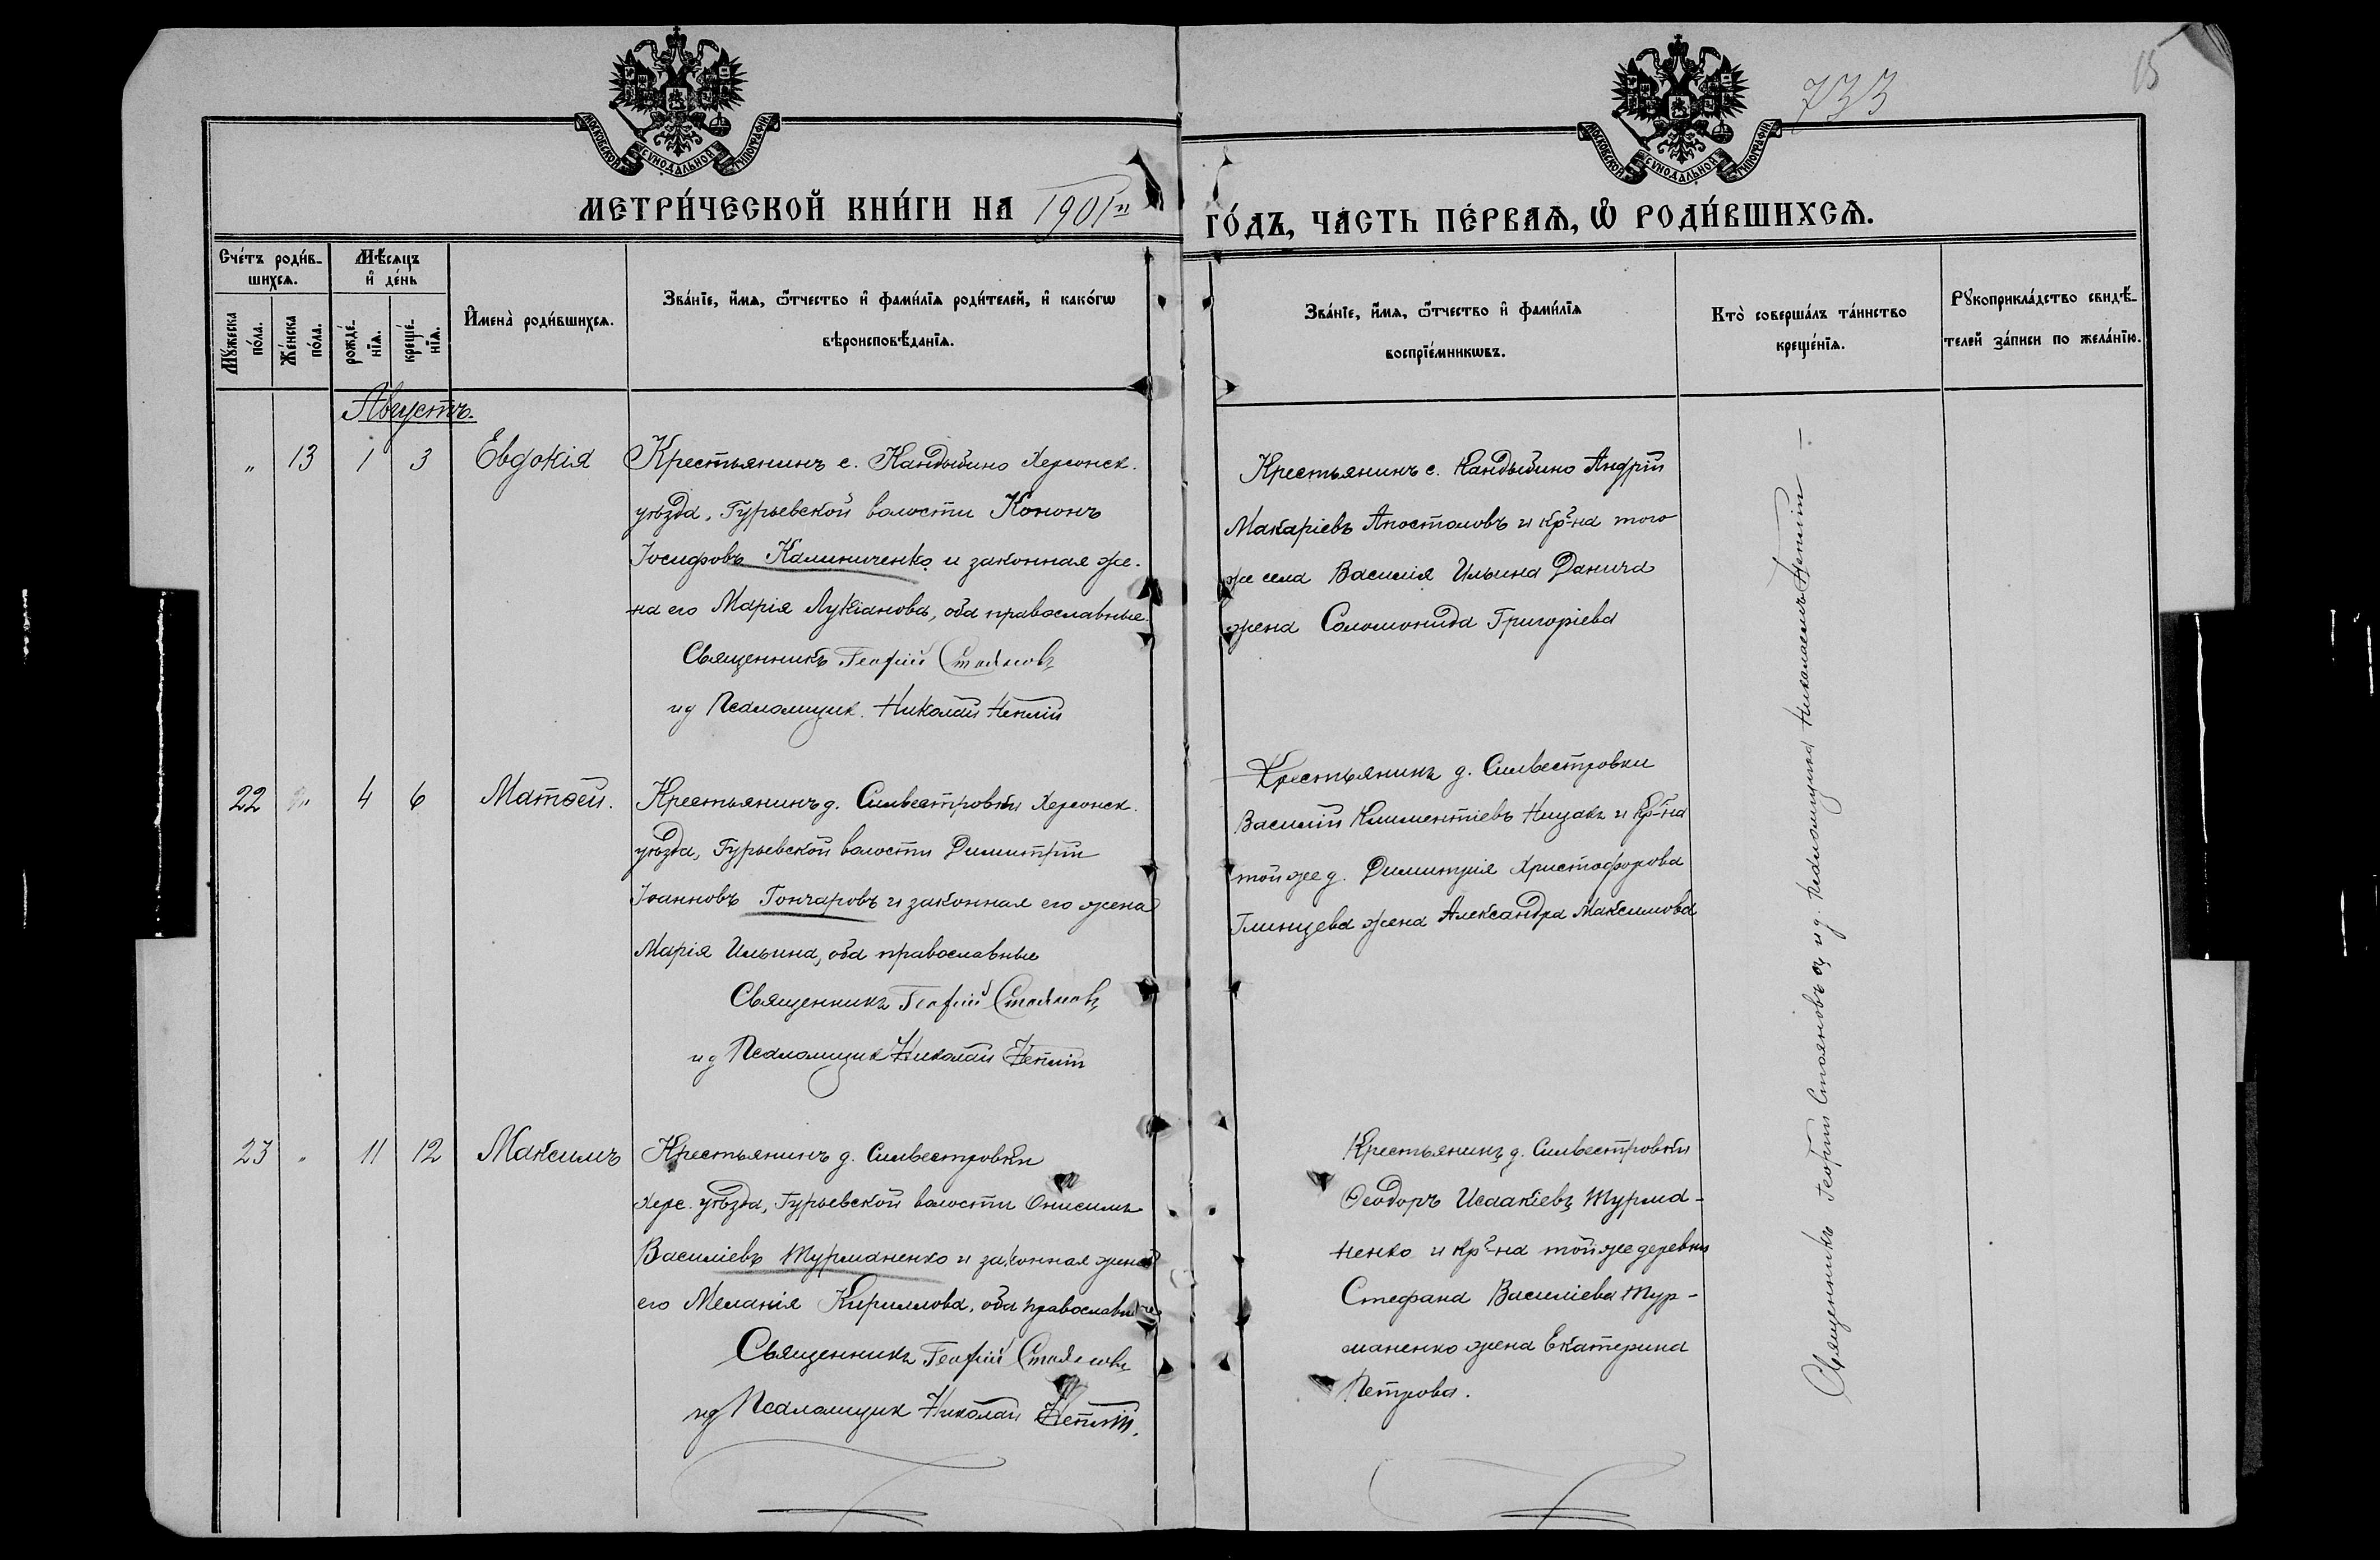 733
15
МОСКОВСКОЙ СѴНОДАЛЬНОЙ ТИПОГРАФІИ
МОСКОВСКОЙ СѴНОДАЛЬНОЙ ТИПОГРАФІИ
МЕТРИ́ЧЕСКОЙ КНИ́ГИ НА 1901й
ГО́ДЪ, ЧА́СТЬ ПЕ́РВАѦ, Ѡ҆ РОДИ́ВШИХСѦ.
Сче́тъ роди́в-
шихсѧ.
Мꙋ́жеска
по́ла.
Же́нска
по́ла.
Мѣ́сѧцъ
и҆ де́нь
рожде́-
нїѧ.
креще́-
нїѧ.
И҆мена̀ роди́вшихсѧ.
Зва́нїе, и҆́мѧ, ѻ҆́тчество и҆ фами́лїѧ роди́телей, и҆ како́гѡ
вѣроисповѣ́данїѧ.
Зва́нїе, и҆́мѧ, ѻ҆́тчество и҆ фами́лїѧ
воспрїе́мникѡвъ.
Кто̀ соверша́лъ та́инство
креще́нїѧ.
Рꙋкоприкла́дство свидѣ́-
телей за́писи по жела́нїю.
Августъ.
" 13 1 3 Евдокія
Крестьянинъ с. Кандыбино Херсонск.
уѣзда, Гурьевской волости Кононъ
Іосифовъ Калиниченко и законная же-
на его Марія Лукіанова, оба православные.
Священникъ Георгій Стояновъ
ид Псаломщик. Николай
Крестьянинъ с. Кандыбино Андрій
Макаріевъ Апостоловъ и кр-на того
же села Василія Ильина Данича
жена Соломонида Григоріева
22 " 4 6 Матѳей.
Крестьянинъ д. Сильвестровки Херсонск.
уѣзда, Гурьевской волости Димитрій
Іоанновъ Гончаровъ и законная его жена
Марія Ильина, оба православные
Священникъ Георгій Стояновъ
ид Псаломщик Николай
Крестьянинъ д. Сильвестровки
Василій Климентіевъ и кр-на
той же д. Димитрія Христофорова
жена Александра Максимова
23 " 11 12 Максимъ
Крестьянинъ д. Сильвестровки
Херс. уѣзда, Гурьевской волости Онисимъ
Василіевъ Турманенко и законная жена
его Меланія Кириллова, оба православные
Священникъ Георгій Стояновъ
ид Псаломщик Николай
Крестьянинъ д. Сильвестровки
Ѳеодоръ Исаакіевъ Турма-
ненко и кр-на той же деревни
Стефана Василіева Тур-
маненко жена Екатерина
Петрова.
Священникъ Георгій Стояновъ съ и д. псаломщика Николаемъ